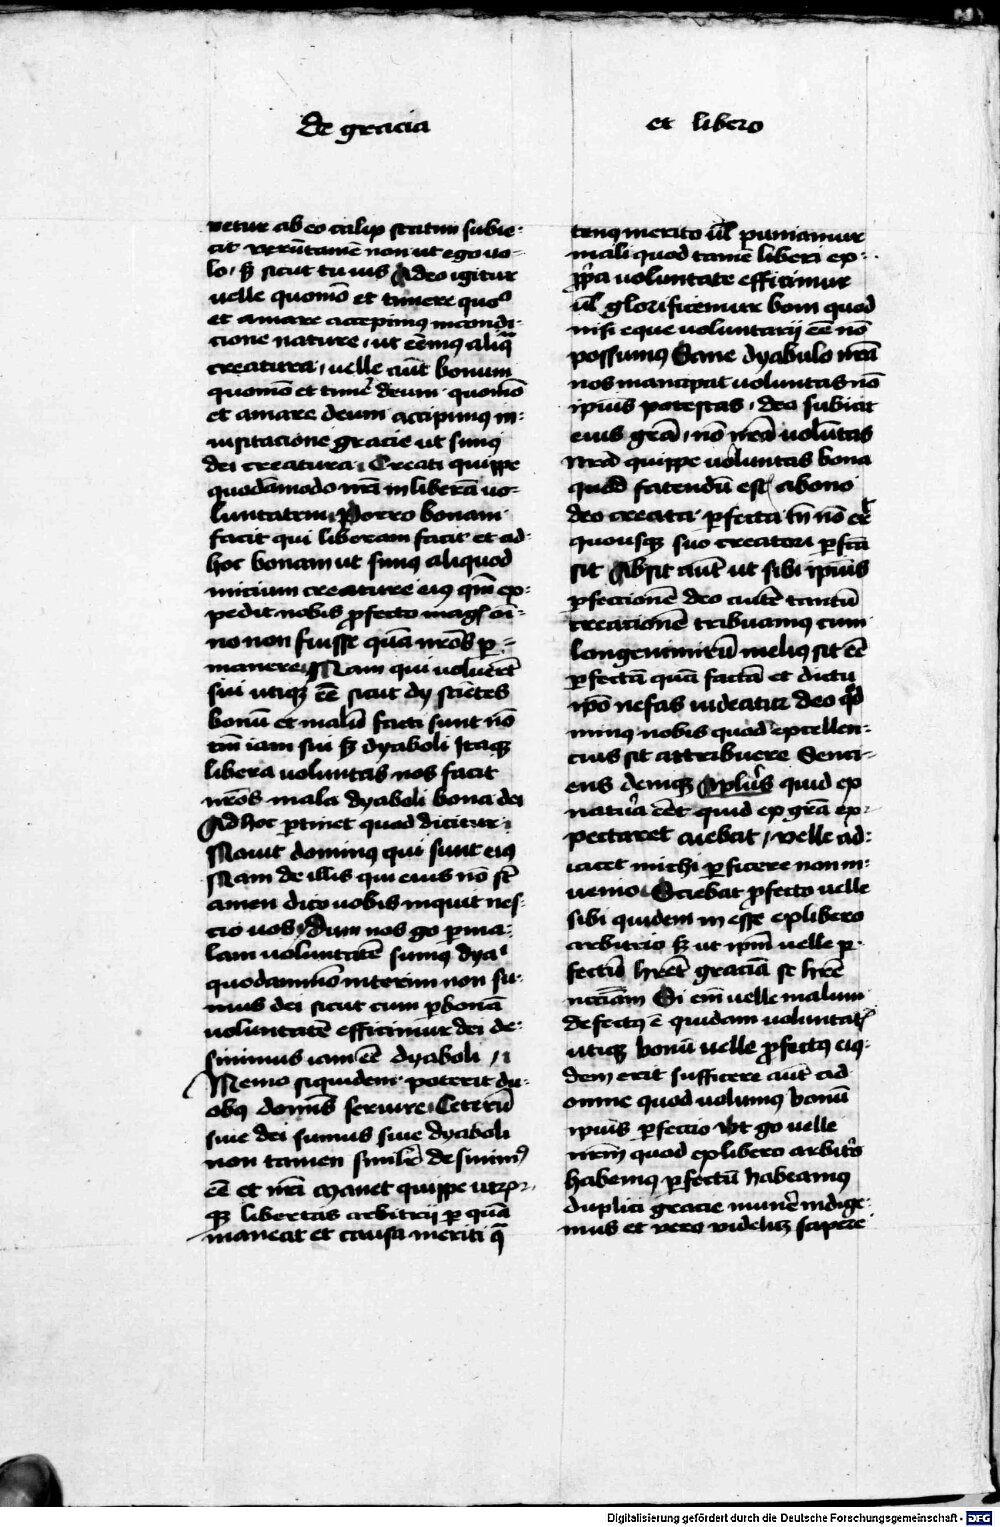 de gracia
et libero
vetur ab eo calix statim subie-
cit veru̅tame̅ non ut ego vo-
lo / sꝫ sicut tu vis A deo igitur
velle quomo̅ et timere quoqͦ
et amare accepimꝰ in condi-
cione nature / ut ee̅mꝰ aliqͣ
creatura / velle aut̅ bonum
quomo̅ et timeͬ deum quomo̅
et amare deum accipimꝰ in
visitacione gracie ut simꝰ
dei creatura Creati quippe
quoda̅modo nr̅a in libera̅ vo-
luntatem Porro bonam
facit qui liberam facit et ad
hoc bonam ut simꝰ aliquod
inicium creature eiꝰ qm̅ ex-
pedit nobis ꝓfecto magꝭ om̅-
no non fuisse qua̅ nr̅os ꝑ-
manere Nam qui volueru̅t
sui utiqꝫ ee̅ sicut dy scie̅tes
bonu̅ et malu̅ facti sunt no̅
tm̅ iam sui sꝫ dyaboli Itaqꝫ
libera voluntas nos facit
nr̅os mala dyaboli bona dei
Ad hoc ꝑtinet quod dicitur
Novit dominꝰ qui sunt eiꝰ
Nam de illis qui eius no̅ st̅
amen dico vobis inquit nes-
cio vos Dum nos go ꝑ ma-
lam voluntate̅ sumꝰ dyaͥ
quodammo̅ interim non su-
mus dei sicut cum ꝑ bona̅
voluntate̅ efficimur dei de-
sinimus iam ee̅ dyaboli /
Nemo siquidem poterit du-
obꝰ domi̅s servire Ceteru̅
sive dei sumus sive dyaboli
non tamen simil̅r desinimꝰ
ee̅ et nr̅i Manet quippe utro-
qꝫ libertas arbitrij ꝑ qua̅
maneat et causa meriti qͣ
tenꝰ merito ul̅ puniamur
mali quod tame̅ liberi ex
ꝓpͥa voluntate efficimur
ul̅ glorificemur boni quod
nisi eque voluntarij ee̅ no̅
possumꝰ Sane dyabulo nr̅a
nos mancipat voluntas no̅
ipius potestas / deo subicit
eius gr̅a / no̅ nr̅a voluntas
Nr̅a quippe voluntas bona
quod fatendu̅ est a bono
deo creata ꝑfecta tn̅ no̅ eͬit
quousqꝫ suo creatori ꝑfc̅a
sit Absit aut̅ ut sibi ipius
ꝑfeccione̅ deo aute̅ tantu̅
creacione̅ tribuamꝰ cum
longe nimiru̅ meliꝰ sit ee̅
ꝑfecta̅ qua̅ facta̅ et dictu
ipo̅ nefas videatur deo qͦd
minꝰ nobis quod excellen-
cius sit attribuere Senci-
ens deniqꝫ Aplu̅s quid ex
natuͬa ee̅t quid ex gr̅a ex-
pectaret aiebat / velle ad-
iacet michi ꝑficere non in-
venio Sciebat ꝓfecto velle
sibi quidem in esse ex libero
arbitrio sꝫ ut ipm̅ velle ꝑ-
fectu̅ hr̅et gracia̅ se hr̅e
ncr̅iam Si em̅ velle malum
defectꝰ e̅ quidam voluntatꝭ
utiqꝫ bonu̅ velle ꝓfectꝰ eiꝰ-
dem erit sufficere aut̅ ad
omne quod volumꝰ bonu̅
ipius ꝑfectio Ut go velle
nr̅m quod ex libero arbitͥo
habemꝰ ꝑfectu̅ habeamꝰ
duplici gracie muneͬ indige-
mus et vero videlicꝫ sapere
Digitalisierung gefördert durch die Deutsche Forschungsgemeinschaft - DFG